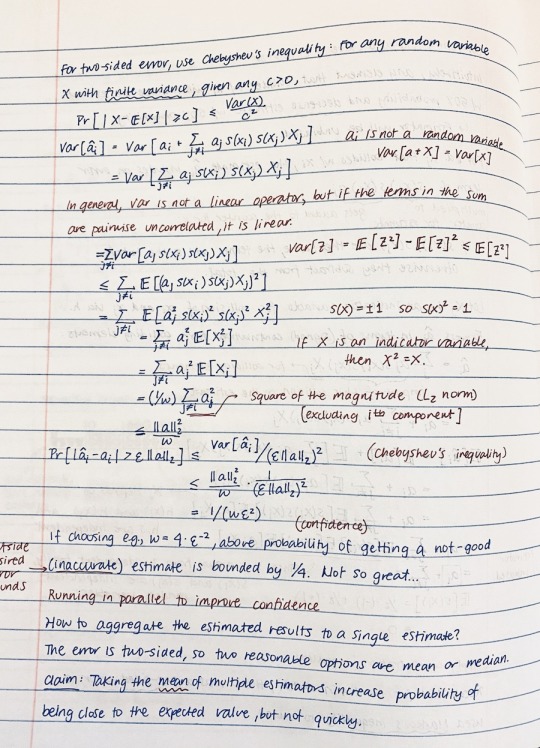 For two-sided error, use Chebyshev's inequality: For any random variable
X with finite variance, given any c>0,
Pr[|X-𝔼[X]|≥c] ≤ Var(X)/c²
Var[âᵢ] = Var[aᵢ + Σ_{j≠i} aⱼ s(xᵢ) s(xⱼ) Xⱼ] aᵢ is not a random variable
= Var[Σ_{j≠i} aⱼ s(xᵢ) s(xⱼ) Xⱼ] Var[a+X] = Var[X]
In general, Var is not a linear operator, but if the terms in the sum
are pairwise uncorrelated, it is linear.
= Σ_{j≠i} Var[aⱼ s(xᵢ) s(xⱼ) Xⱼ] Var[Z] = 𝔼[Z²] - 𝔼[Z]² ≤ 𝔼[Z²]
≤ Σ_{j≠i} 𝔼[(aⱼ s(xᵢ) s(xⱼ) Xⱼ)²]
= Σ_{j≠i} 𝔼[aⱼ² s(xᵢ)² s(xⱼ)² Xⱼ²] s(x) = ±1 so s(x)² = 1
= Σ_{j≠i} aⱼ² 𝔼[Xⱼ²] If X is an indicator variable,
then X² = X.
= Σ_{j≠i} aⱼ² 𝔼[Xⱼ]
= (1/w) Σ_{j≠i} aⱼ² square of the magnitude (L₂ norm)
[excluding ith component]
≤ ‖a‖₂²/w
Pr[|âᵢ-aᵢ| ≥ ε‖a‖₂] ≤ Var[âᵢ]/(ε‖a‖₂)² (Chebyshev's inequality)
≤ ‖a‖₂²/w · 1/(ε‖a‖₂)²
= 1/(wε²)
(confidence)
If choosing eg, w = 4·ε⁻², above probability of getting a not-good
(inaccurate) estimate is bounded by 1/4. Not so great...
Running in parallel to improve confidence
How to aggregate the estimated results to a single estimate?
The error is two-sided, so two reasonable options are mean or median.
claim: Taking the mean of multiple estimators increase probability of
being close to the expected value, but not quickly.